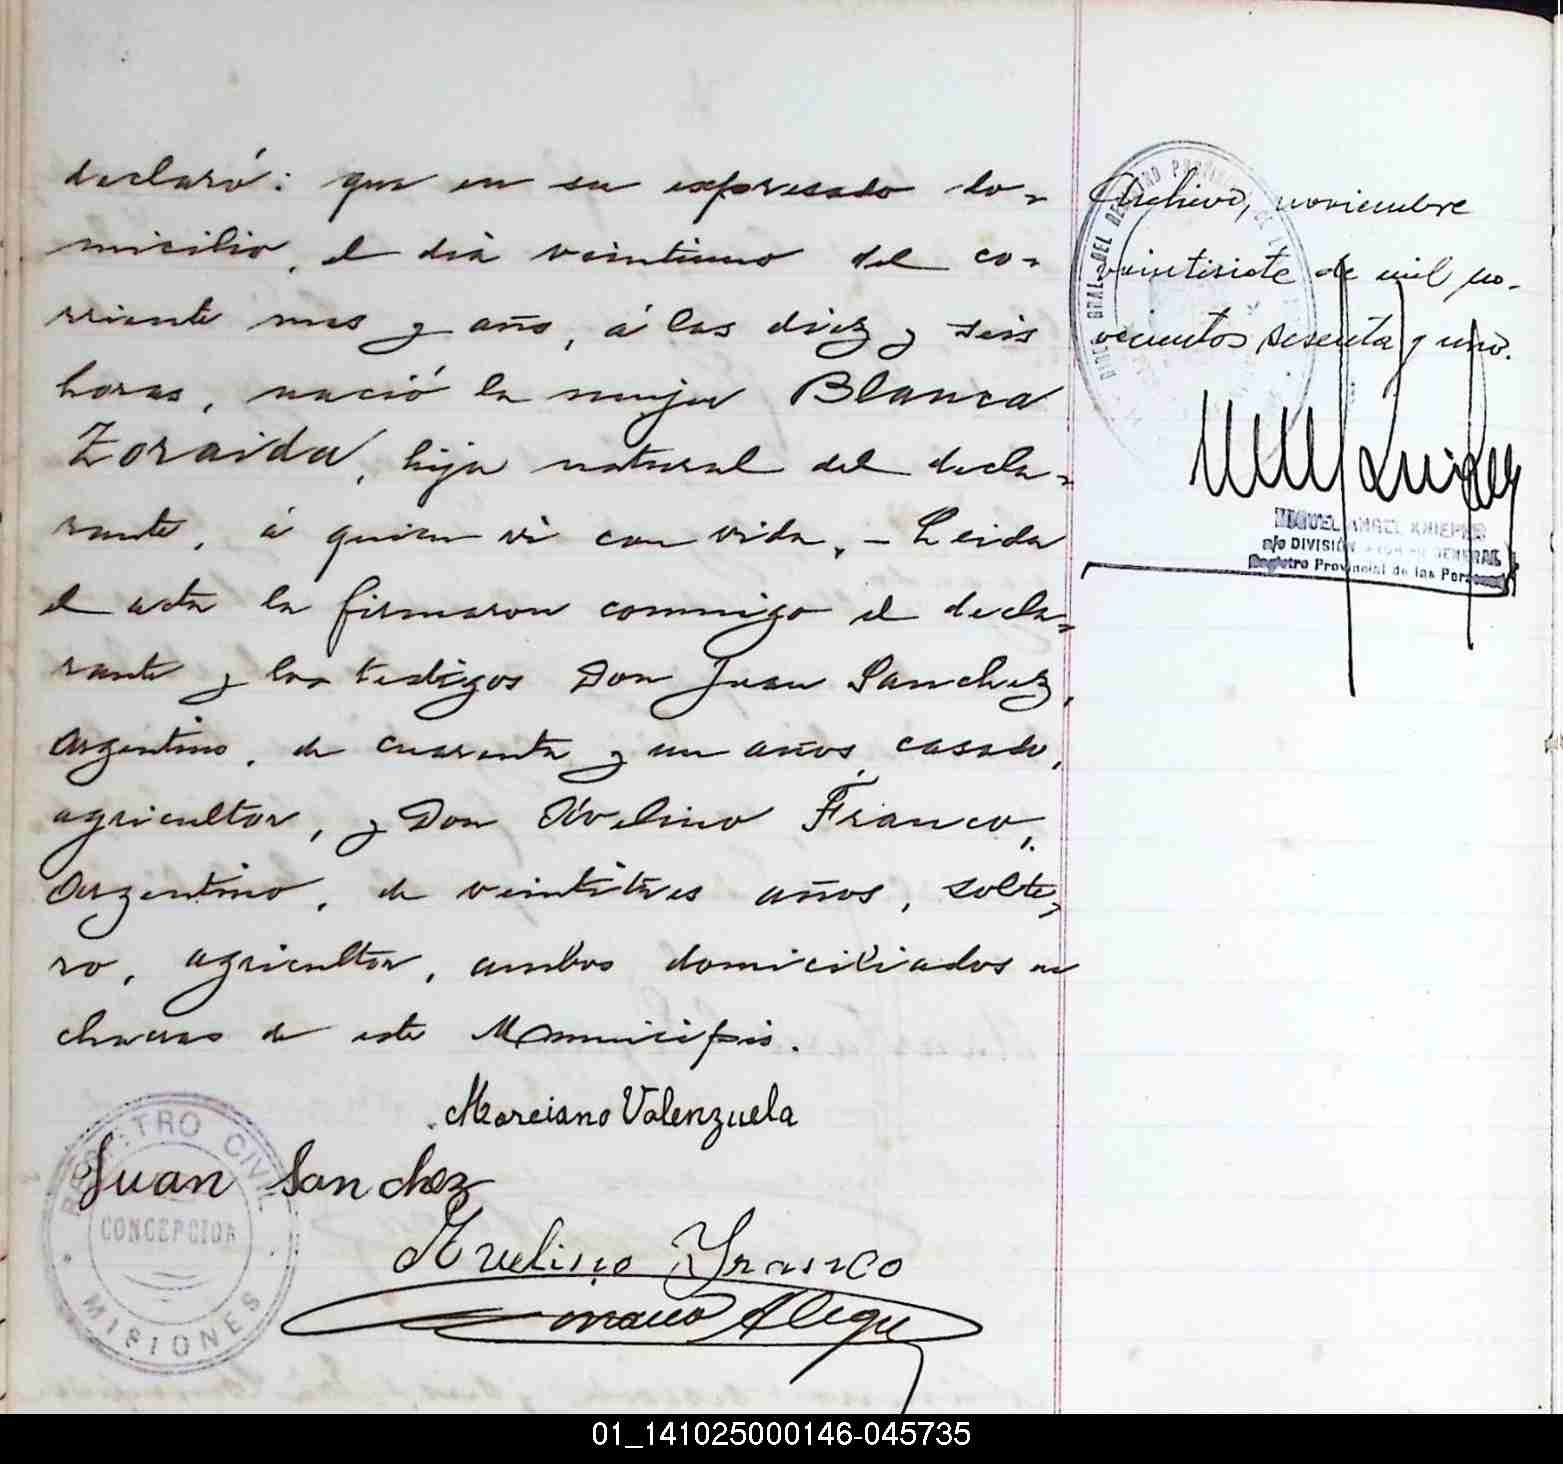 declaró: que en su expresado do-
micilio, el dia veintiuno del co-
rriente mes y año, á las diez y seis
horas, nació la mujer Blanca
Zoraida, hija natural del decla-
rante, á quien vi con vida. - Leida
el acta la firmaron conmigo el decla-
rante y los testigos Don Juan Sanchez,
Argentino, de cuarenta y un años, casado,
agricultor, y Don Avelino Franco,
Argentino, de veintitres años, solte-
ro, agricultor, ambos domiciliados en
chacras de este Municipio.
Marciano Valenzuela
Juan Sanchez
Avelino Franco
Alegre
REGISTRO CIVIL
CONCEPCION
MISIONES
Archivo, noviembre
veintisiete de mil no-
vecientos sesenta y uno.
DIREC. GRAL. DEL REGISTRO PROVINCIAL DE LAS
MIGUEL ANGEL KNIEPER
a/c DIVISIÓN ARCHIVO GENERAL
Registro Provincial de las Personas
01_141025000146-045735